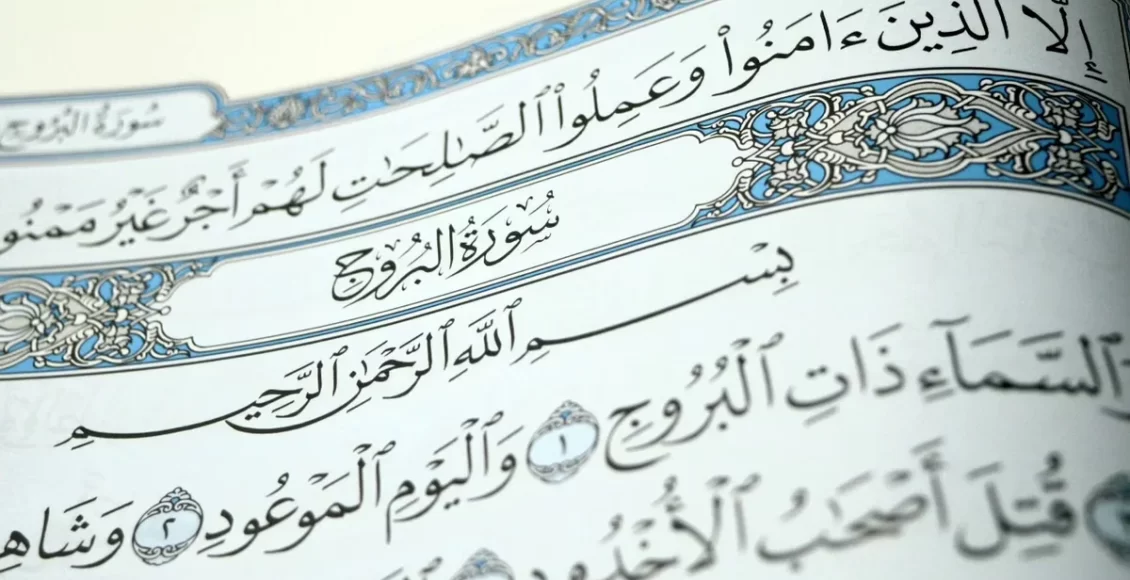 سُورَةُ البُرُوجِ
إِلَّا ٱلَّذِينَ ءَامَنُوا۟ وَعَمِلُوا۟ ٱلصَّٰلِحَٰتِ لَهُمْ أَجْرٌ غَيْرُ
سُورَةُ البُرُوجِ
بِسْمِ ٱللَّهِ ٱلرَّحْمَٰنِ ٱلرَّحِيمِ
وَٱلسَّمَآءِ ذَاتِ ٱلْبُرُوجِ ١ وَٱلْيَوْمِ ٱلْمَوْعُودِ ٢
قُتِلَ أَصْحَٰبُ ٱلْأُخْدُودِ